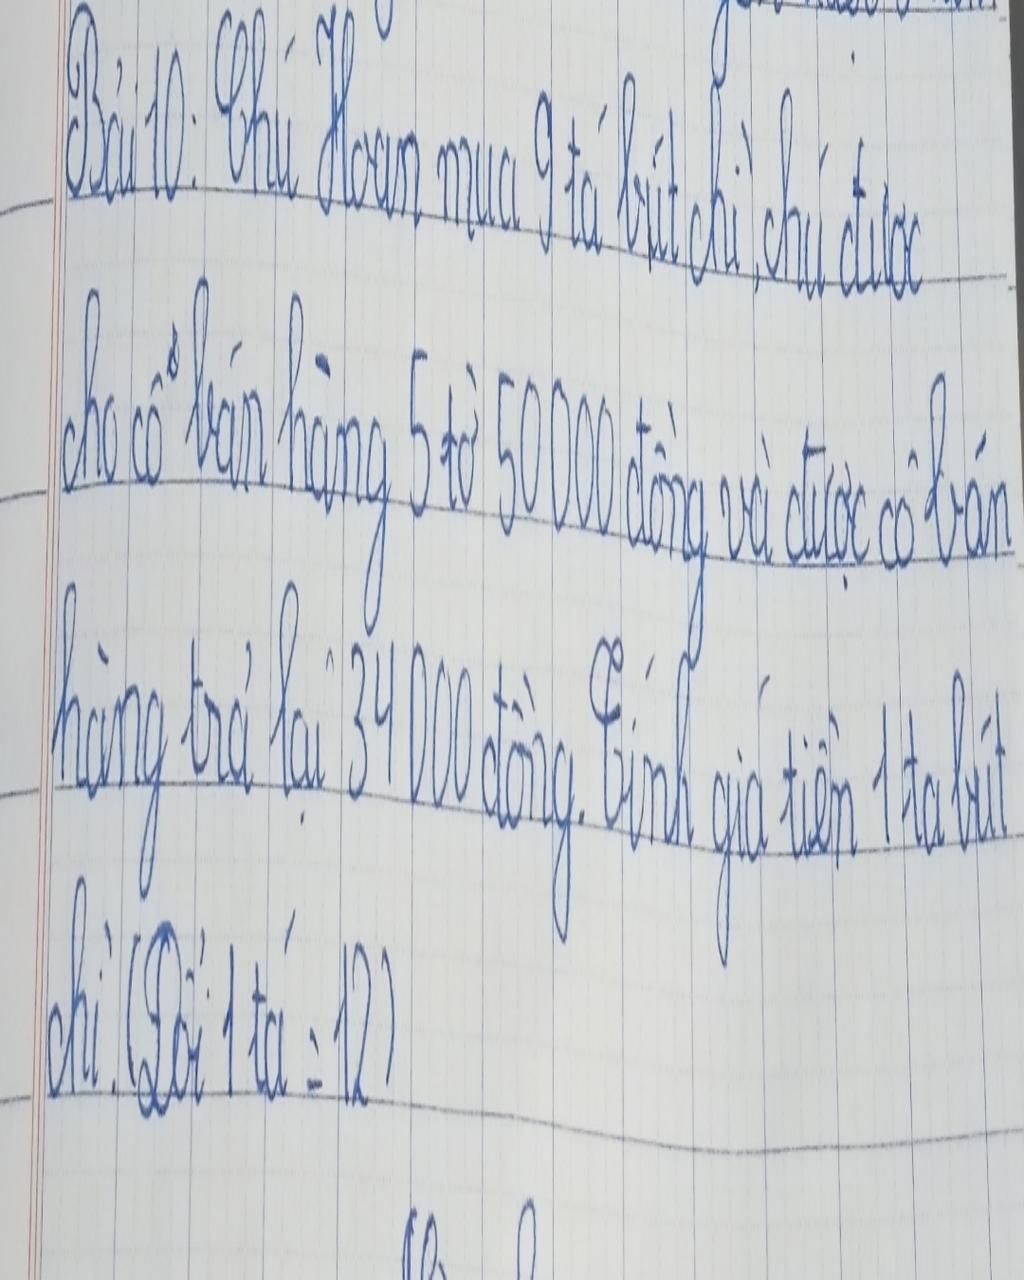 Bài 10: Chú Hoan mua 9 tá bút chì, chú được
cho cô bán hàng 5 tờ 50 000 đồng và được cô bán
hàng trả lại 34 000 đồng. Tính giá tiền 1 tá bút
chì. (Đổi 1 tá = 12)